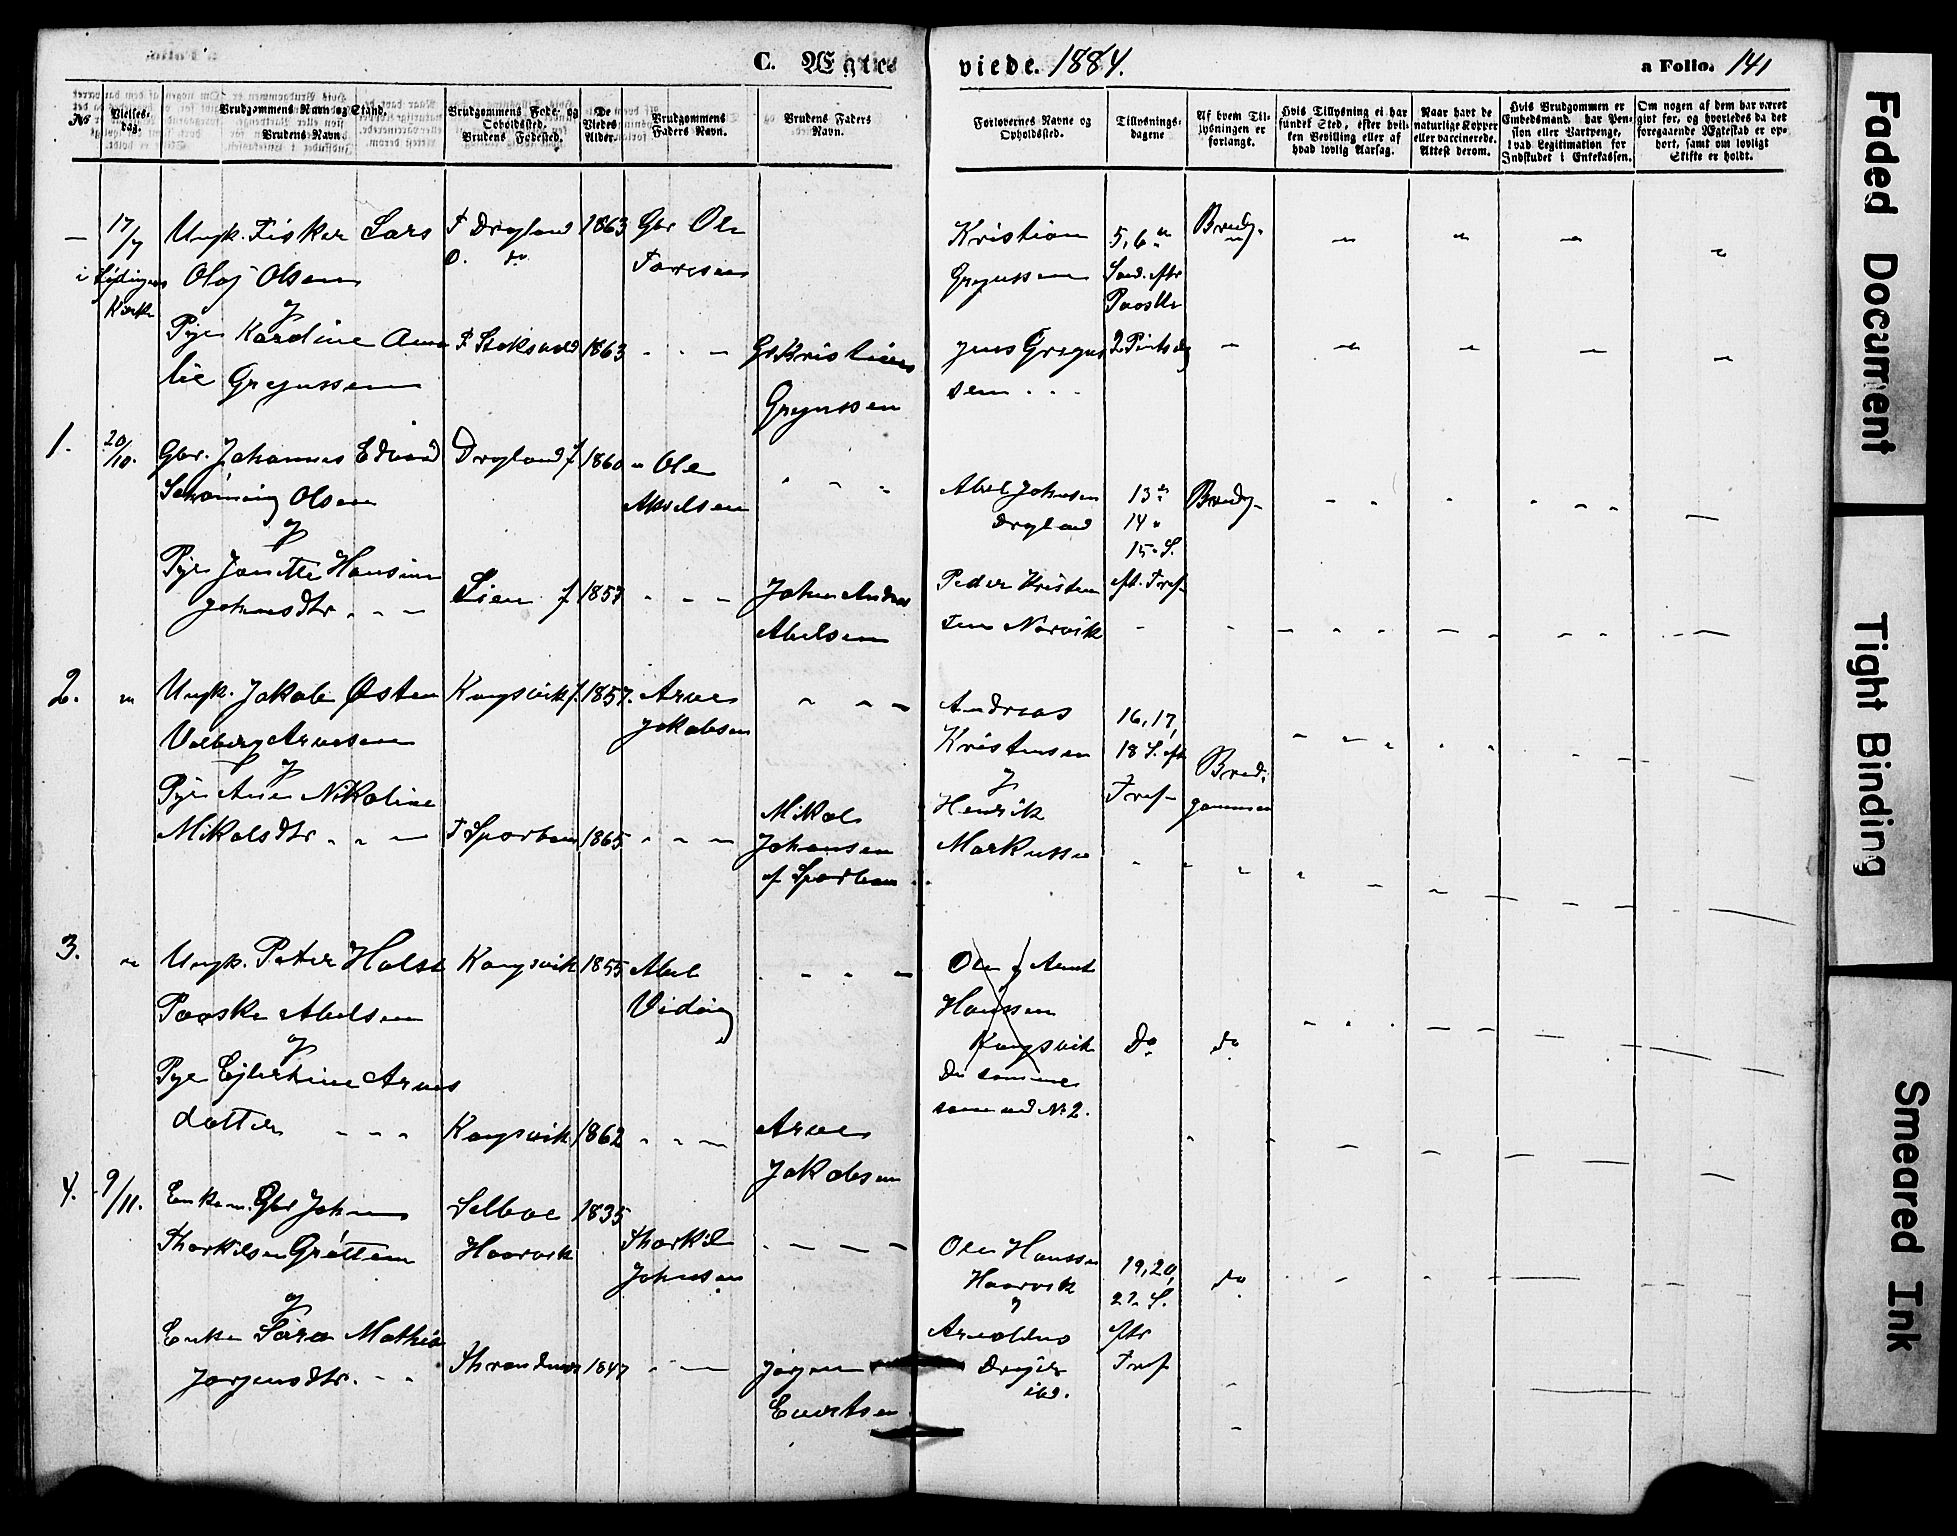 C. Ægtev
viede. 1884.
a Folio. 141
No
Vielses-
dag.
Brudgommens Navn og Stand.
Brudens Navn.
Brudgommens Føde- og
Opholdssted.
Brudens Fødested.
De
Viedes
Alder.
Brudgommens
Faders Navn.
Brudens Faders
Navn.
Forlovernes Navne og
Opholdssted.
Tillysnings-
dagene
Af hvem Til-
lysningen er
forlangt.
Hvis Tillysning ei har
fundet Sted, efter hvil-
ken Bevilling eller af
hvad lovlig Aarsag.
Naar havt de
naturlige Kopper
eller vaccinerede.
Attest derom.
Hvis Brudgommen er
Embedsmand, har Pen-
sion eller Vartpenge,
hvad Legitimation for
Indskudet i Enkekassen.
Om nogen af dem har været
gift før, og hvorledes da det
foregaaende Ægteskab er op-
hørt, samt om lovligt
Skifte er holdt.
— 17/7
i Lødingens
Kirke
Ungk. Fisker Lars
Olaj Olsen
og
Pige Karoline Ama
lie Gregussen
F Drogland
O. do
F Stoksund
1863
1863
Gbr Ole
Toresen
Gb Kristian
Gregussen
Kristian
Gregussen
Jens Gregus
sen
5, 6te
Sønd. eftr
Paaske
2 Pintsedg
Brudg.
1. 20/10.
Gbr. Johannes Edvard
Schøning Olsen
og
Pige Janette Hansine
Johnsdtr.
Drogland f
Lien f
1860
1857
Ole
Akselsen
Johan Andreas
Abelsen
Abel Johnsen
Drogland
Peder Kristen
sen Norvik
13de
14 "
15. S.
eft. Tref
Brudg.
2. "
Ungk. Jakob Østen
Volberg Arnesen
og
Pige Ane Nikoline
Mikalsdtr
Kongsvik f.
F Sporban
1857.
1865
Arnes
Jakobsen
Mikal
Johansen
af Sporban
Andreas
Kristensen
og
Henrik
Markussen
16, 17,
18 S. eft
Tref
Brud.
gommen
3. "
Ungk. Peter Holst
Paaske Abelsen
og
Pige Ejlertine Arnes
datter
Kongsvik
Kongsvik
1855
1862
Abel
Viding
Arnes
Jakobsen
Ole og Arnt
Hanssen
Kongsvik
De samme
som ved No 2.
Do
do
4. 9/11.
Enkem. Gbr Johan
Thorkilsen Grøttem
og
Enke Sara Mathea
Jørgensdtr.
Selboe
Haarvik
Thrandnæs
1835
1847
Thorkil
Johnsen
Jørgen
Evertsen
Ole Hanssen
Haarvik
og
Arnoldus
Drejer
ibd.
19, 20,
21 S.
eftr
Tref
do
Faded Document
Tight Binding
Smeared Ink